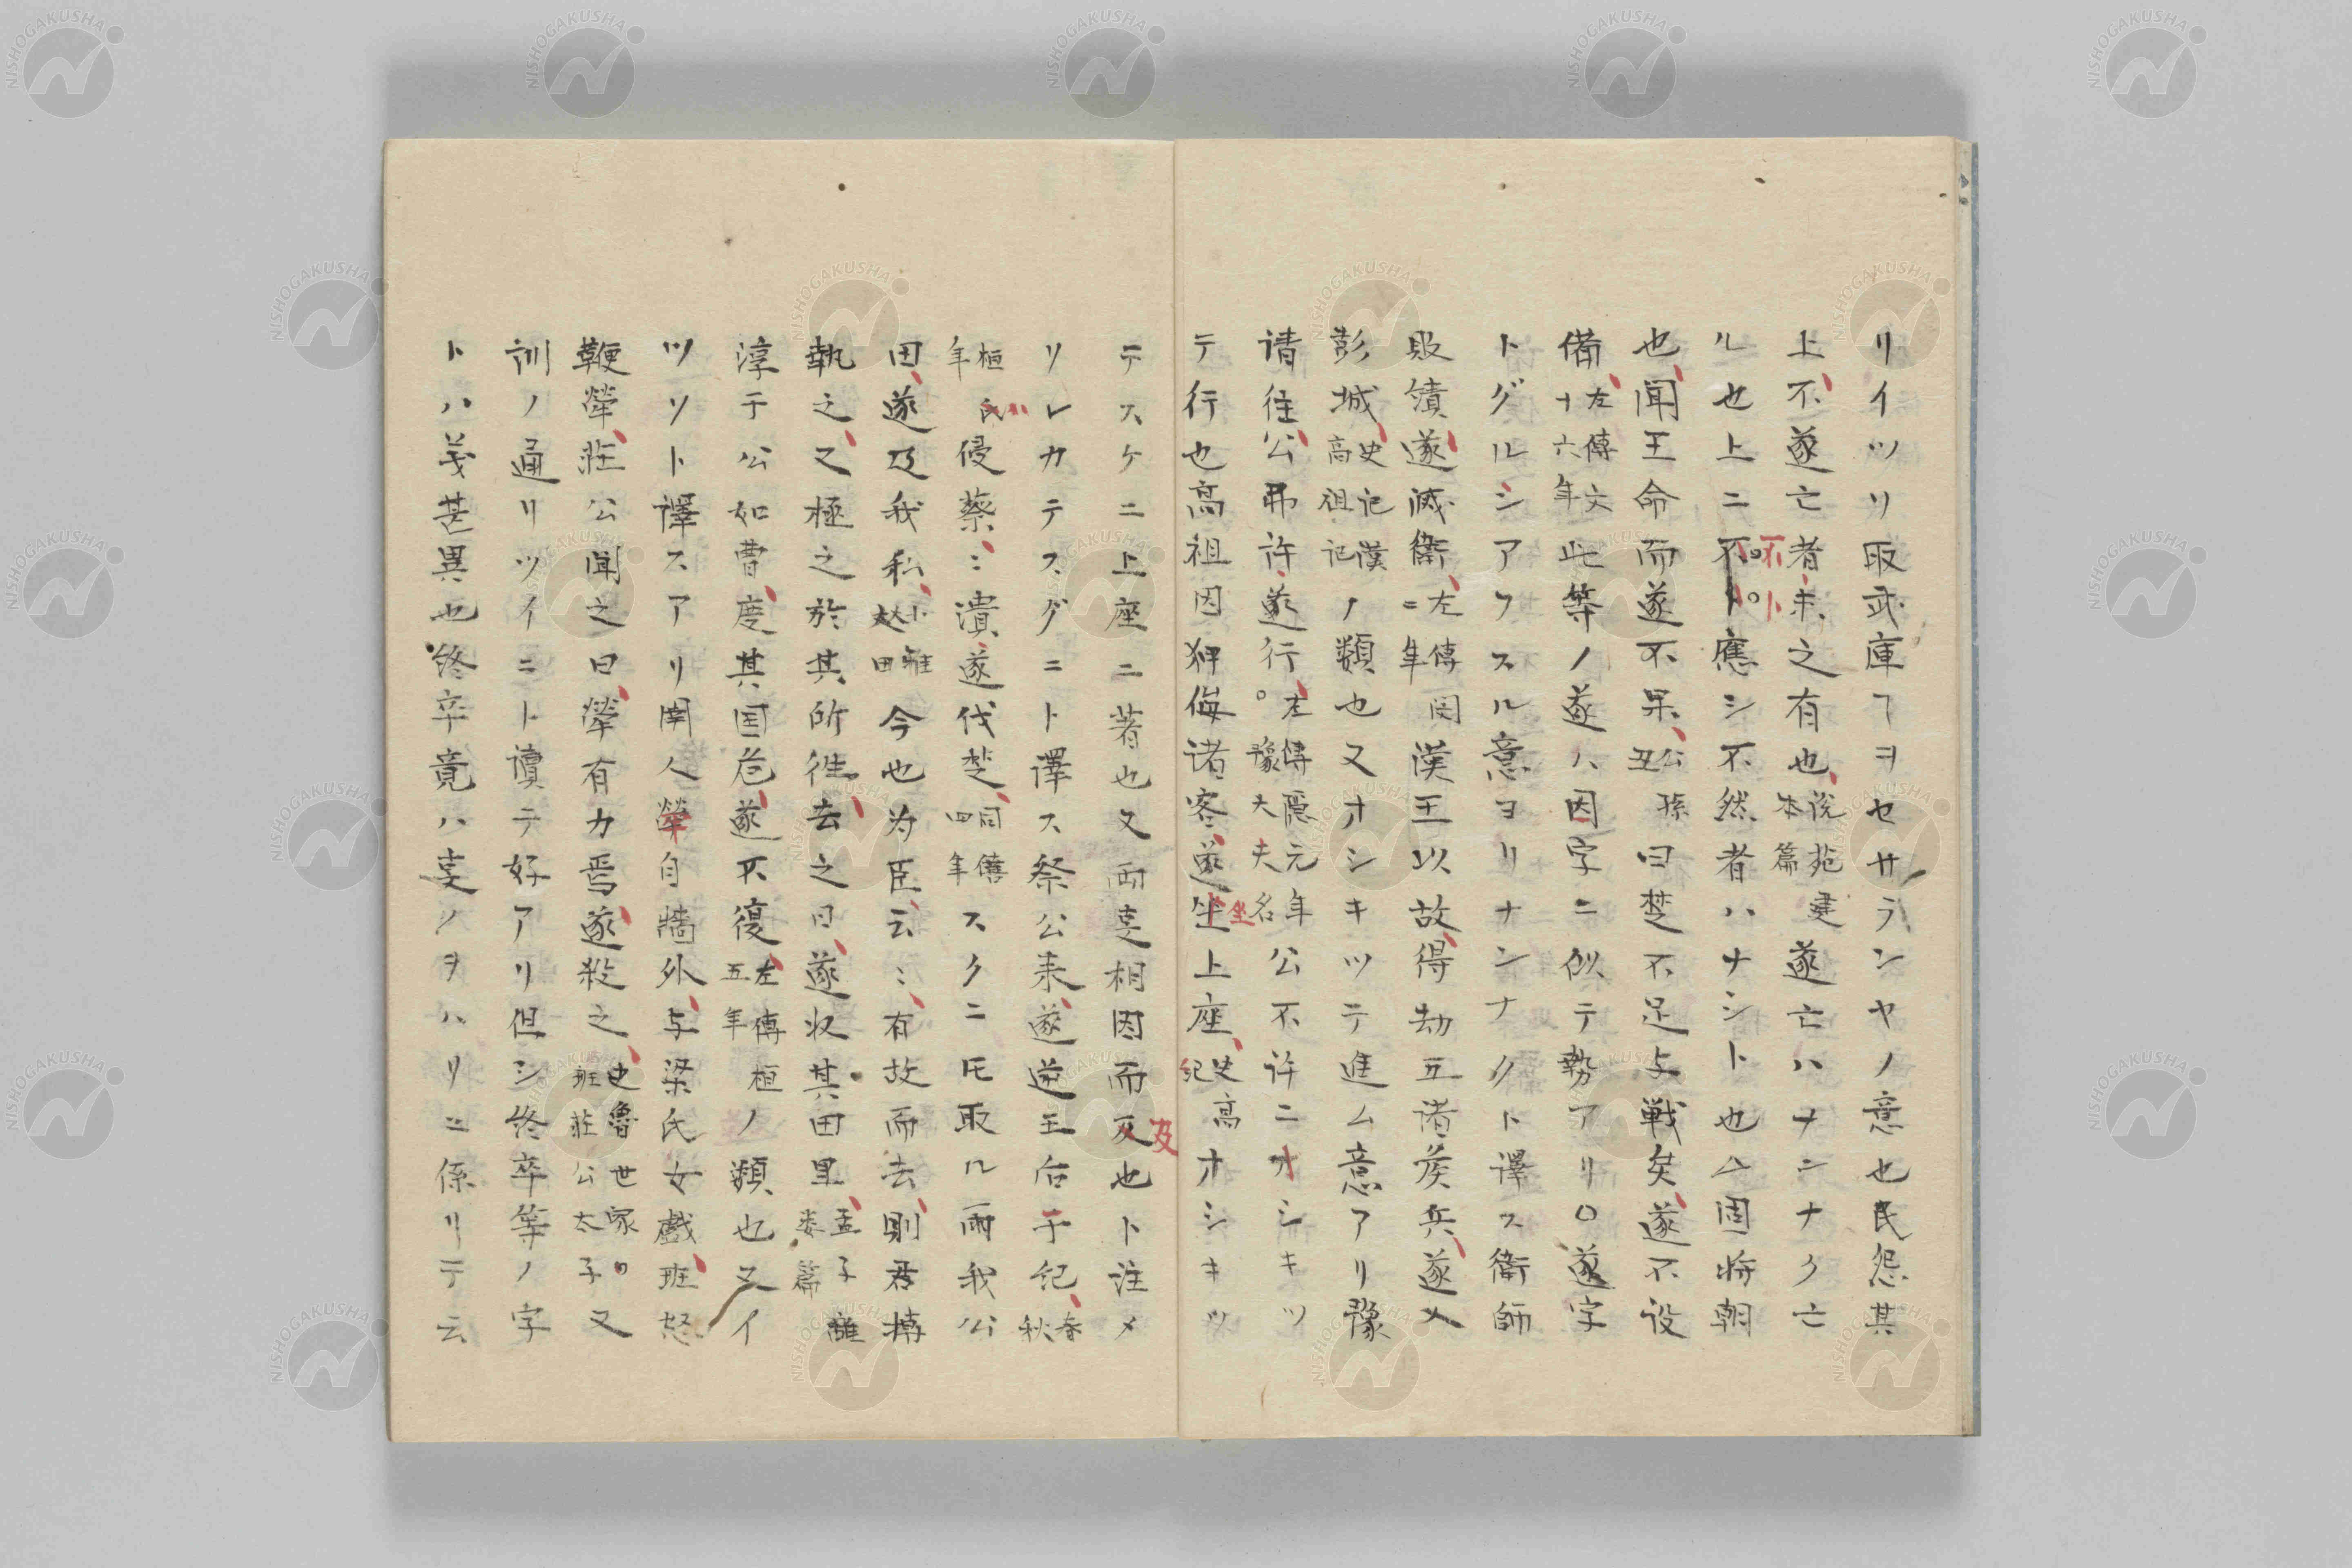 リイツリ取武庫ヿヲセサランヤノ意也民怨其
上不遂亡者未之有也說苑建本篇遂亡ハヲシナク亡
ル也上ニ不ト應シ不然者ハナシト也△固將朝
也聞王命而遂不果公孫丑曰楚不足与戦矣遂不设
備左傳文十六年此等ノ遂ハ因字ニ似テ勢アリ○遂字
トグルシアフスル意ヨリナンナクト譯ス衛師
敗績遂滅衛左傳閔二年漢王以故得劫五諸侯兵遂入
彭城史記漢高祖記ノ類也又オシキツテ進ム意アリ豫
请往公弗許遂行。左傳隱元年豫大夫名公不许ニオシキツ
テ行也高祖因狎侮诸客遂坐上座史高紀オシキツ
テスケニ上座ニ著也又両吏相因而及也ト注メ
リレカテスグニト譯ス祭公来遂逆王后于紀春秋
桓年氏侵蔡ミ潰遂伐楚同僖四年スクニ㔫取ル雨我公
田遂及我私小雅大田今也为臣云ミ有故而去則君摶
執之又極之於其所往去之日遂收其田里孟子離婁篇
淳于公如曹度其国危遂不復左傳桓五年ノ類也又イ
ツソト譯スアリ圉人犖自牆外与梁氏女戲班怒
鞭犖莊公聞之曰犖有力焉遂殺之史魯世家。班莊公太子又
訓ノ通リツイニト讀テ好アリ但シ終卒等ノ字
トハ义甚異也終卒竟ハ吏ノヲハリニ係リテ云
不ト
坐
及